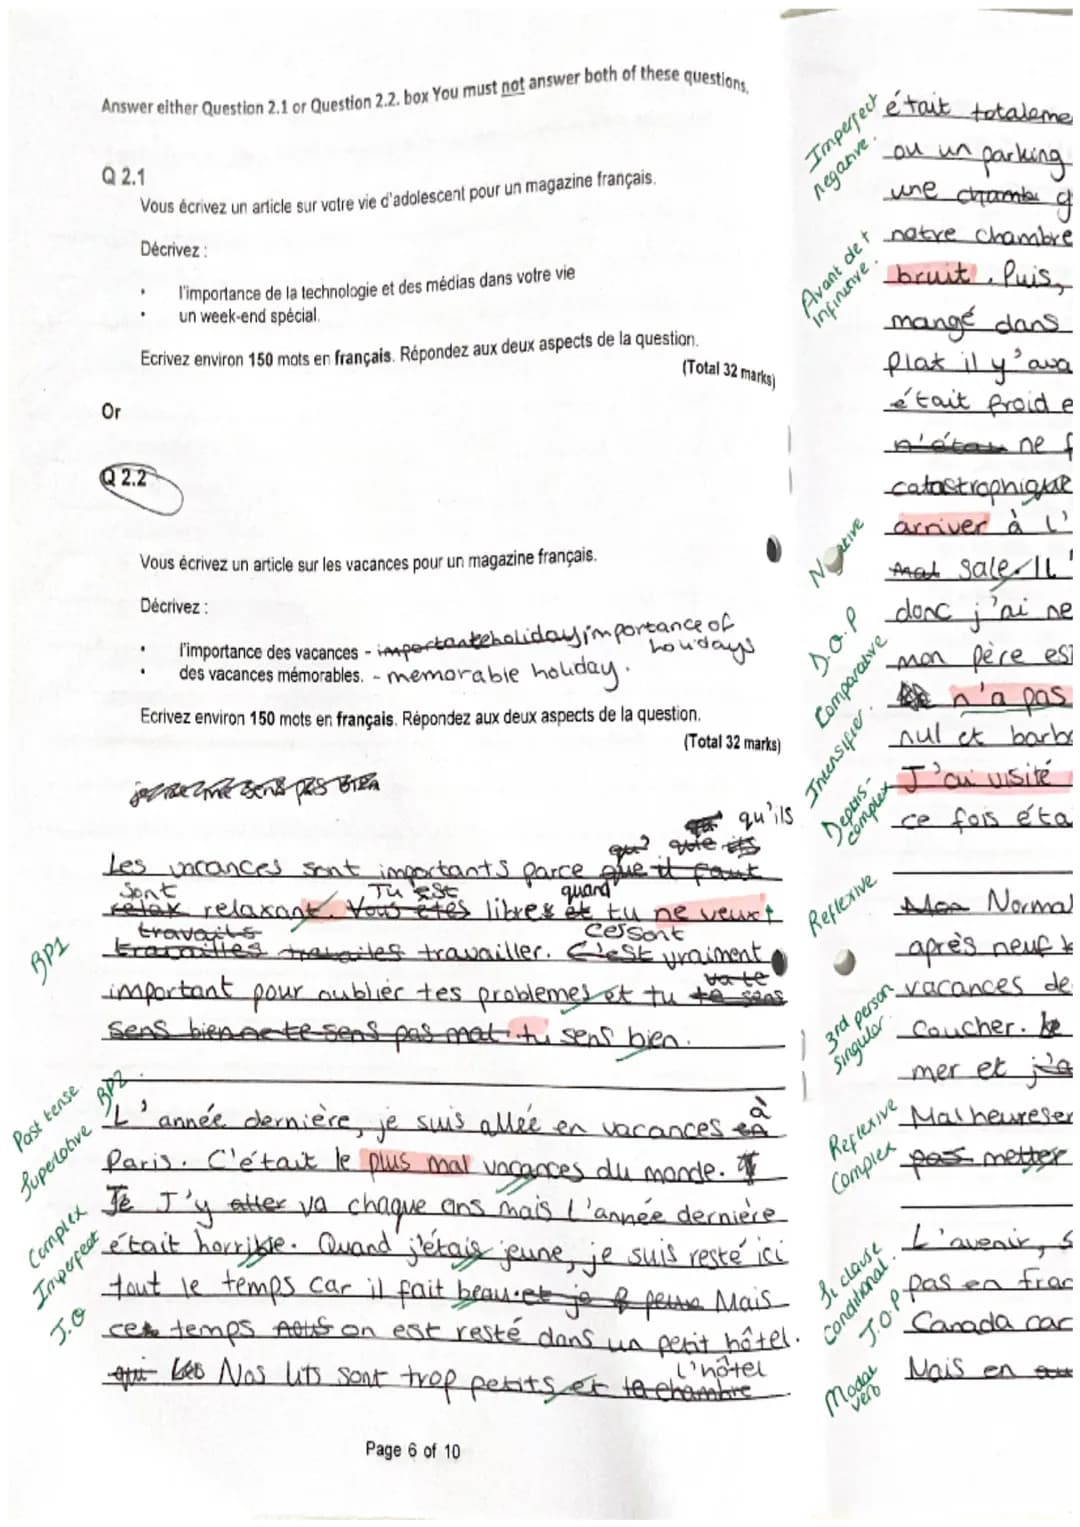 Answer either Question 2.1 or Question 2.2. box You must not answer both of these questions.
Q 2.1
Vous écrivez un article sur votre vie d'adolescent pour un magazine français.
Décrivez :
• l'importance de la technologie et des médias dans votre vie
• un week-end spécial.
Ecrivez environ 150 mots en français. Répondez aux deux aspects de la question.
(Total 32 marks)
Or
Q 2.2
Vous écrivez un article sur les vacances pour un magazine français.
Décrivez :
• l'importance des vacances - importanteholidays importance of
holidays
• des vacances mémorables. - memorable holiday.
Ecrivez environ 150 mots en français. Répondez aux deux aspects de la question.
(Total 32 marks)
qu'ils
Les vacances sont importants parce que il faut
sont Tu est quand
relax relaxant. Vous êtes libres et tu ne veux
travails cersont
travailles travailler. C'est vraiment
BP1
important pour oublier tes problemes et tu te sens
sens bien ne te sens pas mal. tu sens bien.
BP2
Past tense
Superlative
L'année dernière, je suis allée en vacances en à
Paris. C'était le plus mal vacances du monde.
Je J'y aller va chaque ans mais l'année dernière
Complex
Imperfect
était horrible. Quand j'étais jeune, je suis resté ici
J.O
tout le temps car il fait beau. et je Mais
ces temps nous on est resté dans un petit hôtel.
l'hôtel
qui Les Nos lits sont trop petits et la chambre
Page 6 of 10
Imperfect
negative.
était totaleme
ou un parking
une chambe g
Avant de +
infinitive.
notre chambre
bruit. Puis,
mangé dans
plat il y'ava
était froid e
n'était ne f
catastrophique
arriver à l'
sale. Il
D.O.P
donc j'ai ne
Comparative
mon père est
n'a pas
Intensifier.
nul et barba
Depuis-
complex
J'ai visité
ce fois éta
Reflexive
Mon Normal
après neuf
3rd person
singular.
vacances de
coucher. Le
mer et j'a
Reflexive
Complex
Malheureser
pas metter
Si clause
conditional.
L'avenir, s
J.O.P
pas en fran
Canada car
Modal
verb
Mais en